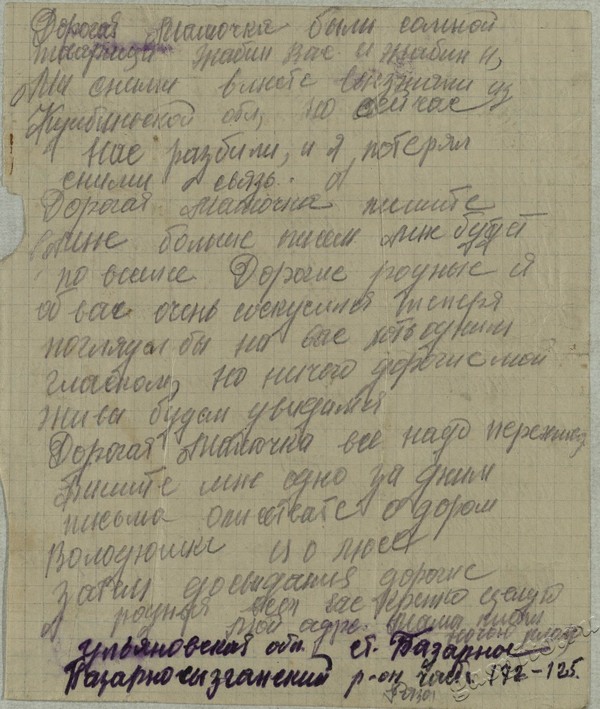 Дорогая Мамочка были сомной
товарищи
Мы сними вместе выезжали из
Куйбышской обл, но сейчас
Нас разбили, и я потерял
сними связь. Я
Дорогая Мамочка пишите
мне больше писем мне будет
по веселе Дорогие родные я
об вас очень соскусился теперя
поглядел бы на вас хоть одним
глазком, но ничего дорогие мои
живы будем увидимся
Дорогая Мамочка все надо пережить
Пишите мне одно за дним
письма описывате о
Володюшки и о
Затем досвидания дорогие
родные всех вас крепко целую
Мой адре.
ульяновская обл. ст. Базарное
Базарносызганский р-он часть 172-125.